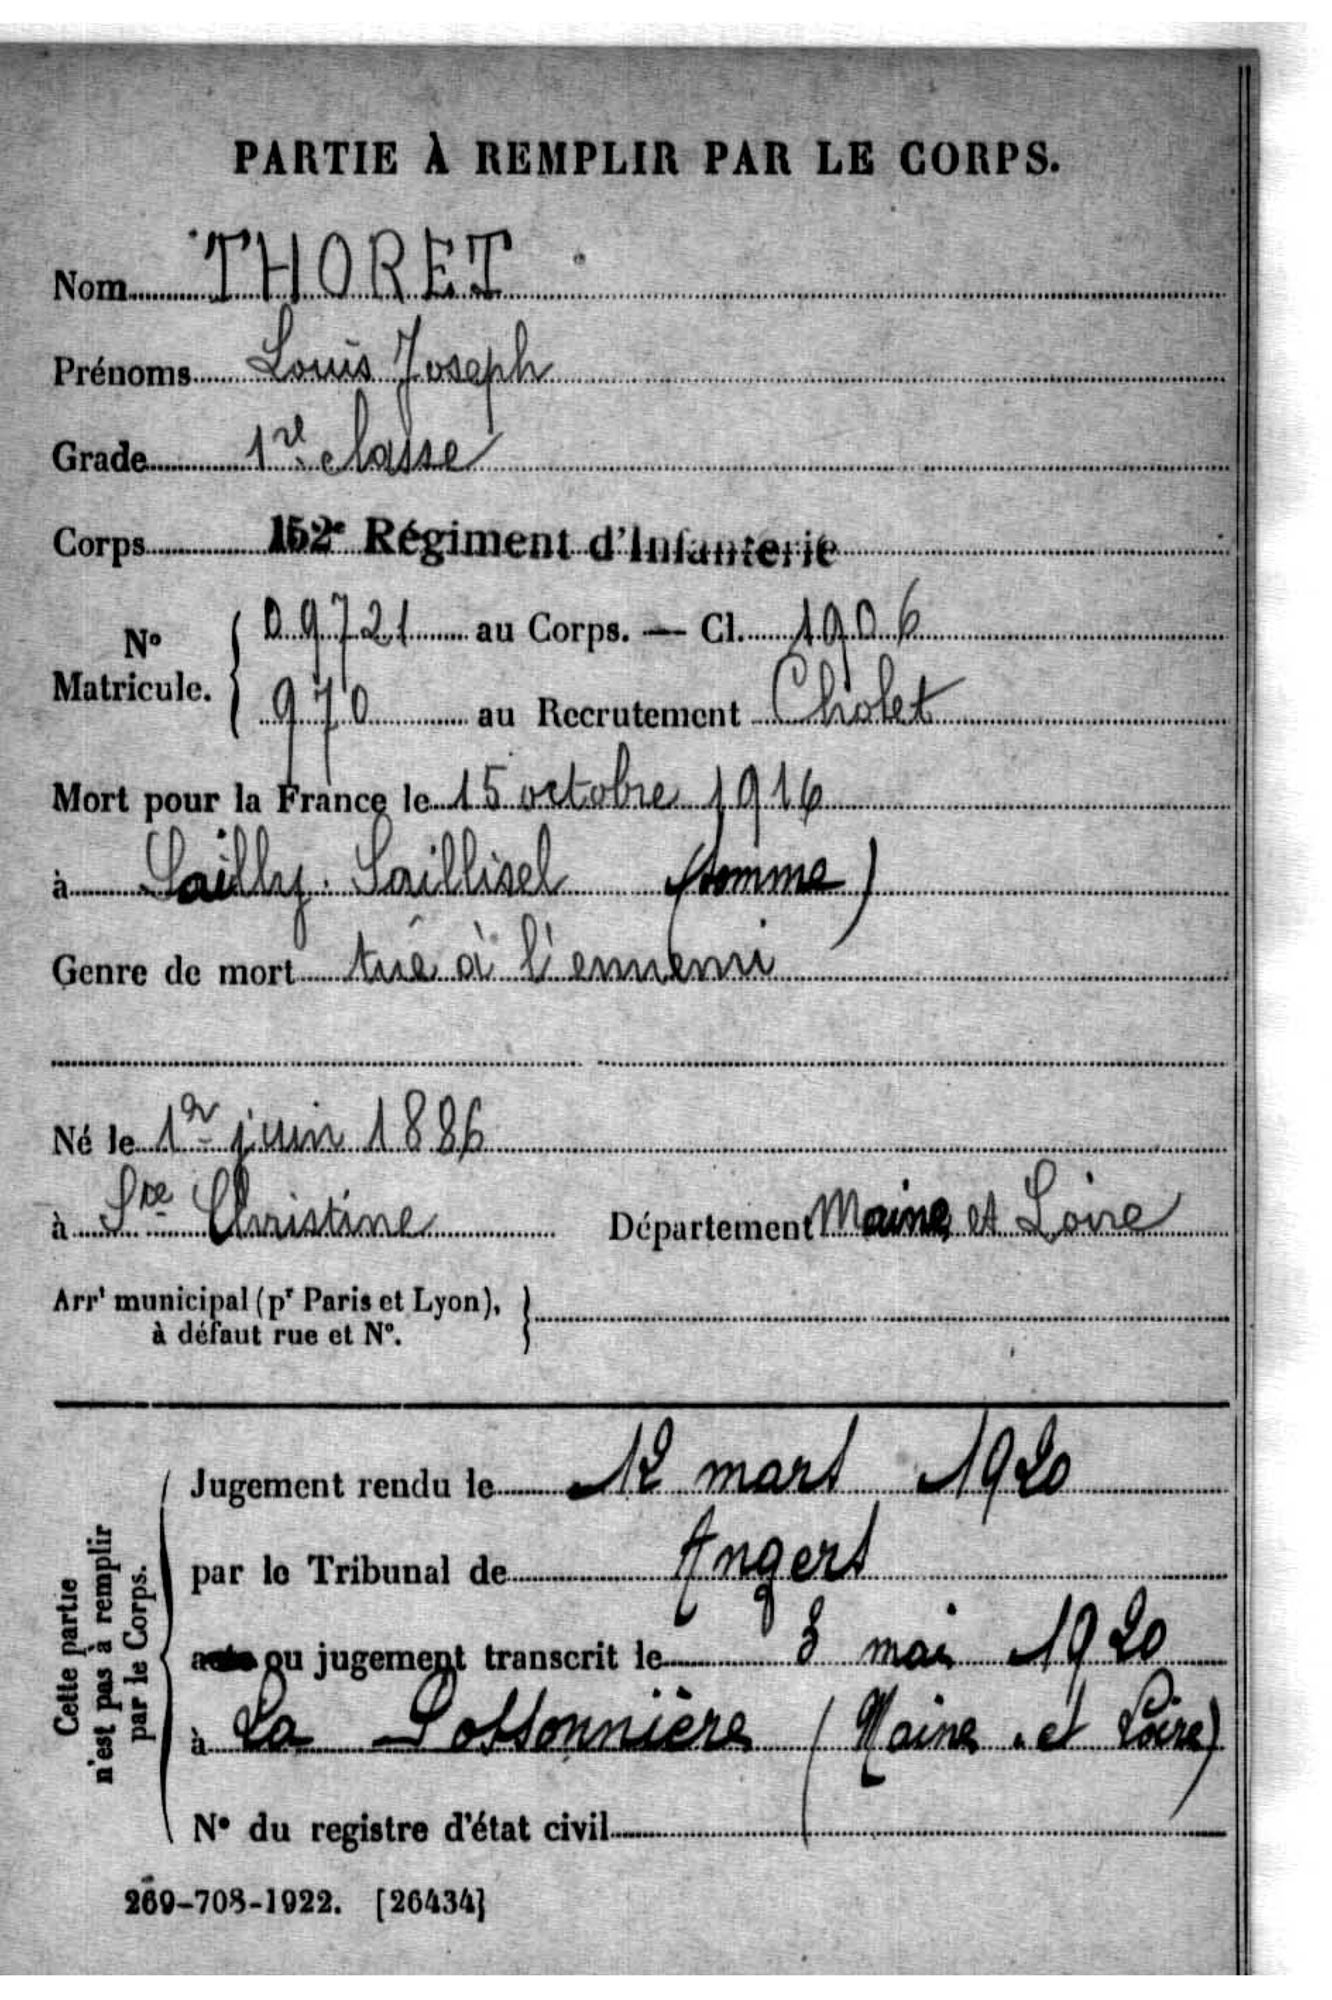 PARTIE À REMPLIR PAR LE CORPS.
Nom THORET
Prénoms Louis Joseph
Grade 1re classe
Corps 152e Régiment d'Infanterie
No Matricule. { 09721 au Corps. — Cl. 1906
970 au Recrutement Cholet
Mort pour la France le 15 octobre 1916
à Sailly. Saillisel (Somme)
Genre de mort tué à l'ennemi
Né le 1er juin 1886
à Ste Christine Département Maine et Loire
Arrt municipal (pr Paris et Lyon), }
à défaut rue et No.
Cette partie
n'est pas à remplir
par le Corps.
Jugement rendu le 12 mars 1920
par le Tribunal de Angers
acte ou jugement transcrit le 3 mai 1920
à La Possonnière (Maine et Loire)
No du registre d'état civil
269-708-1922. [26434]